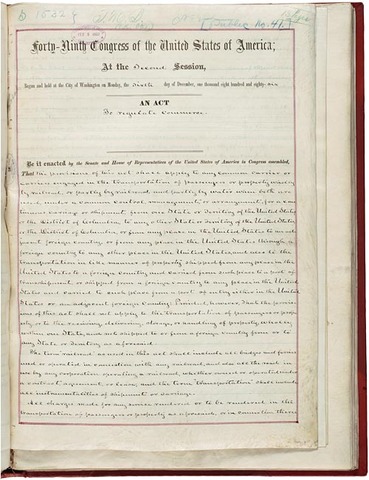 Forty-Ninth Congress of the United States of America;
At the Second Session,
Begun and held at the City of Washington on Monday, the sixth day of December, one thousand eight hundred and eighty-six
AN ACT
To regulate commerce.
Be it enacted by the Senate and House of Representatives of the United States of America in Congress assembled,
That the provisions of this act shall apply to any common carrier or
carriers engaged in the transportation of passengers or property wholly
by railroad, or partly by railroad and partly by water when both are
used, under a common control, management, or arrangement, for a con
tinuous carriage or shipment, from one State or Territory of the United States,
or the District of Columbia, to any other State or Territory of the United States,
or the District of Columbia, or from any place in the United States to an ad
jacent foreign country, or from any place in the United States through a
foreign country to any other place in the United States, and also to the
transportation in like manner of property shipped from any place in the
United States to a foreign country and carried from such place to a port of
transshipment, or shipped from a foreign country to any place in the United
States and carried to such place from a port of entry either in the United
States or an adjacent foreign country: Provided, however, That the provis
ions of this act shall not apply to the transportation of passengers or prop
erty, or to the receiving, delivering, storage, or handling of property, wholly
within one State, and not shipped to or from a foreign country from or to
any State or Territory as aforesaid.
The term "railroad" as used in this act shall include all bridges and ferries
used or operated in connection with any railroad, and also all the road in
use by any corporation operating a railroad, whether owned or operated under
a contract, agreement, or lease; and the term "transportation" shall include
all instrumentalities of shipment or carriage.
All charges made for any service rendered or to be rendered in the
transportation of passengers or property as aforesaid, or in connection there